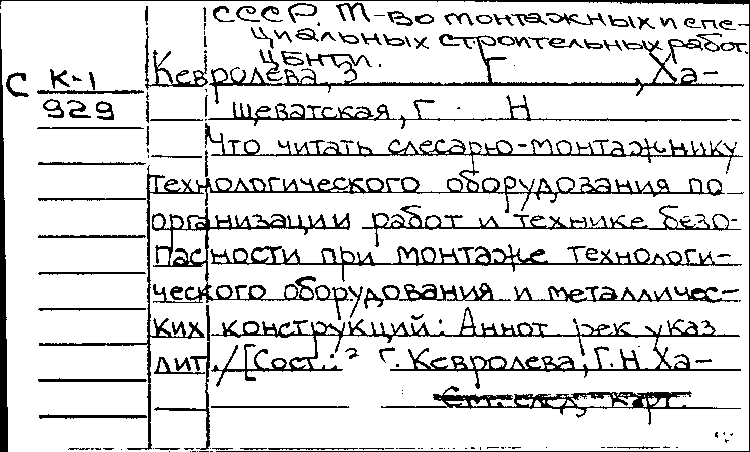 СССР. М-во монтажных и спе-
циальных строительных работ.
ЦБНТИ.
Кевролева, З Г , Ха-
С К-1
929
щеватская, Г. Н
Что читать слесарю-монтажнику
технологического оборудования по
организации работ и технике безо-
пасности при монтаже технологи-
ческого оборудования и металличес-
ких конструкций: Аннот рек указ
лит./[Сост.: Г. Кевролева, Г. Н. Ха-
См. след. карт.